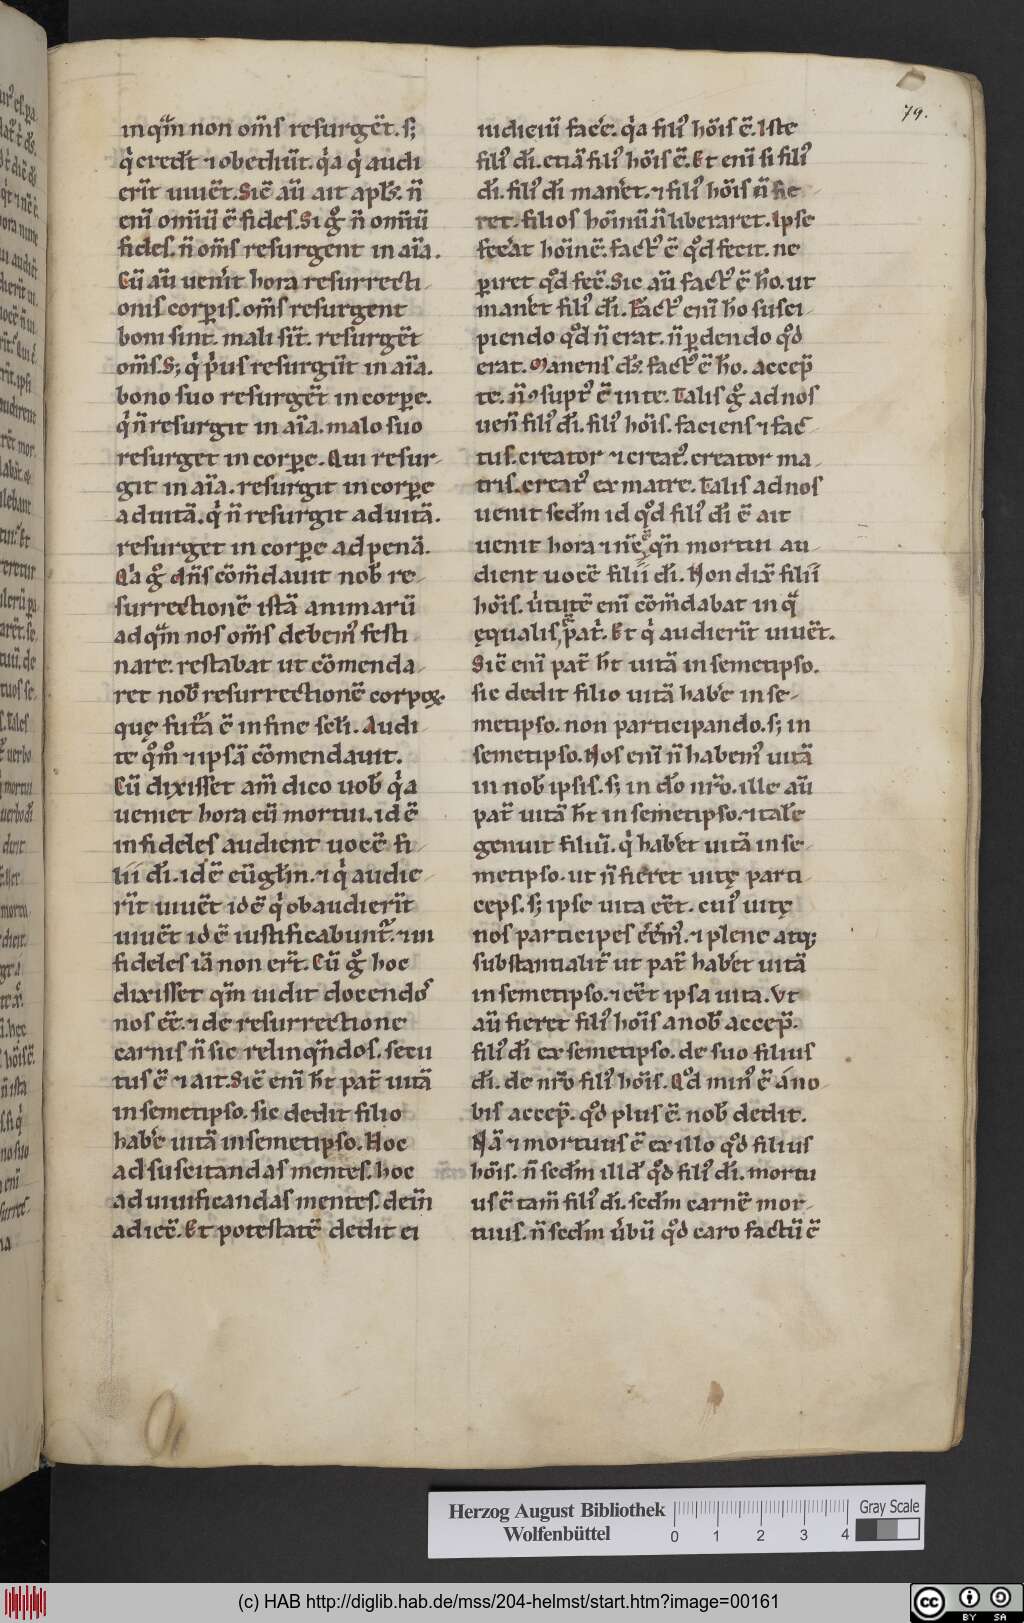 79.
in qua᷑m non om̄s resurgēt. s;
q̇ credūt ⁊ obediūt. q̇a q̇ audi
erīt uiuēt. Sic̄ aū ait apl's. n̄
enī omīū ē fides. Si gͦ n̄ omīū
fides. n̄ om̄s resurgent in aīa.
Cū aū uen̓it hora resurrecti
onis corꝑis. om̄s resurgent
boni sint. mali sīt. resurgēt
om̄s. S; q̇ p̓us resurgūt in aīa.
bono suo resurgēt in corꝑe.
q̇ n̄ resurgit in aīa. malo suo
resurget in corꝑe. Qui resur-
git in aīa. resurgit in corꝑe
ad uitā. q̇ n̄ resurgit ad uitā.
resurget in corꝑe ad penā.
Q̇a gͦ dn̄s cōm̄dauit nob̄ re-
surrectionē istā animarū
ad qua᷑m nos om̄s debem᷒ festi
nare. restabat ut cōmenda-
ret nob̄ resurrectionē corpoꝝ.
quę fut᷑a ē in fine scl̄i. Audi
te qͦmͦ ⁊ ipsā cōmendauit.
Cū dixisset am̄ dico uob̄ q̇a
ueniet hora cū mortui. id ē
infideles audient uocē fi-
lii dī. id ē euḡl̄m. ⁊ q̇ audie-
rīt uiuēt id ē q̇ obaudierīt
uiuēt id ē iustificabunt᷑. ⁊ in
fideles iā non er̄t. Cū gͦ hoc
dixisset qm̄ uidit docendos
nos eē. ⁊ de resurrectione
carnis n̄ sic relinqn̄dos. secu
tus ē ⁊ ait. Sic̄ enī h̄t pat̄ uitā
in semetipso. sic dedit filio
hab̓e uitā in semetipso. Hoc
ad suscitandas mentes. hoc
ad uiuificandas mentes. dein̄
adicē. Et potestatē dedit ei
iudiciū fac̓e. q̇a fili᷒ hōis ē. Iste
fili᷒ dī. etiā fili᷒ hōis ē. Et enī si fili᷒
dī. fili᷒ dī man̓et. ⁊ fili᷒ hōis n̄ fie-
ret. filios hōinū n̄ liberaret. Ipse
fec̓at hōinē. fact᷒ ē qͦd fecit. ne
ꝑiret qͦd fec̄. Sic aū fact᷒ ē h̄o. ut
man̓et fili᷒ dī. Fact᷒ enī h̄o susci-
piendo qͦd n̄ erat. n̄ ꝑdendo qͦd
erat. Manens ds̄. fact᷒ ē h̄o. accep̄
te. n̄ ꝯsūpt᷒ ē in te. Talis gͦ ad nos
uen̄ fili᷒ dī. fili᷒ hōis. faciens ⁊ fac-
tus. creator ⁊ creat᷒. creator ma-
tris. creat᷒ ex matre. Talis ad nos
uenit sedm id qͦd fili᷒ dī ē ait
uenit hora ⁊ nc̄ ē qn̄ mortui au-
dient uocē filii dī. Non dix̄ filii
hōis. u̓tutē enī cōm̄dabat in qa᷑
ęqualis ē pat̓. Et q̇ audierīt uiuēt.
Sic̄ enī pat̄ h̄t uitā in semetipso.
sic dedit filio uitā hab̓e in se-
metipso. non participando. s; in
semetipso. Nos enī n̄ habem᷒ uitā
in nob̄ ipsis. s; in d̄o nr̄o. ille aū
pat̄ uitā h̄t in semetipso. ⁊ tal̄e
genuit filiū. q̇ hab̓et uitā in se-
metipso. ut n̄ fieret uitę parti
ceps. s; ipse uita eēt. cui᷒ uitę
nos participes eēm᷒. ⁊ plene atq;
substantialit̄ ut pat̄ hab̓et uitā
in semetipso. ⁊ eēt ipsa uita. Vt
aū fieret fili᷒ hōis a nob̄ accep̄.
fili᷒ dī ex semetipso. de suo filius
dī. de nr̄o fili᷒ hōis. Qͦd min᷒ ē a no-
bis accep̄. qͦd plus ē. nob̄ dedit.
Nā ⁊ mortuus ē ex illo qͦd filius
hōis. n̄ sedm illd̄ qͦd fili᷒ dī. mortu
us ē tam̄ fili᷒ dī. sedm carnē mor-
tuus. n̄ sedm u̓bū qͦd caro factū ē
Herzog August Bibliothek
Wolfenbüttel
0 1 2 3 4
Gray Scale
(c) HAB http://diglib.hab.de/mss/204-helmst/start.htm?image=00161
cc BY SA